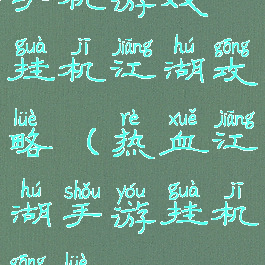 手机游戏
guà jī jiāng hú gōng
挂机江湖攻
lüè rè xuě jiāng
略（热血江
hú shǒu yóu guà jī
湖手游挂机
gōng lüè